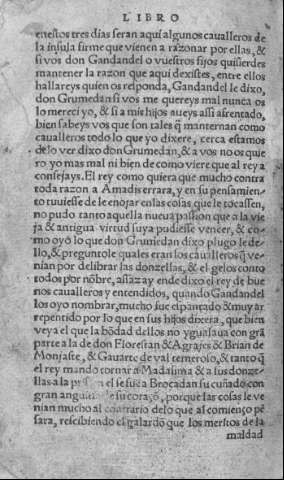 LIBRO
enestos tres dias seran aqui algunos caualleros de
la insula firme que vienen a razonar por ellas, &
si vos don Gandandel o vuestros fijos quisierdes
mantener la razon que aqui dexistes, entre ellos
hallareys quien os responda, Gandandel le dixo,
don Grumedan si vos me quereys mal nunca os
lo mereci yo, & si a mis hijos aueys assi afrentado,
bien sabeys vos que son tales q̃ manternan como
caualleros todo lo que yo dixere, cerca estamos
de lo ver dixo don Grumedan, & a vos no os que
ro yo mas mal ni bien de como viere que al rey a
consejays. El rey como quiera que mucho contra
toda razon a Amadis errara, y en su pensamien
to tuuiesse de le enojar en las cosas que le tocassen,
no pudo tanto aquella nueua passion que a la vie
ja & antigua virtud suya pudiesse vencer, & co
mo oyo lo que don Grumedan dixo plugo le de
llo, & pregunto le quales eran los caualleros q̃ ve
nian por delibrar las donzellas, & el gelos conto
todos por nõbre, assaz ay ende dixo el rey de bue
nos caualleros y entendidos, quando Gandandel
los oyo nombrar, mucho fue espantado & muy ar
repentido por lo que en sus hijos dixera, que bien
veya el que la bõdad dellos no ygualaua con grã
parte a la de don Florestan & Agrajes & Brian de
Monjaste, & Gauarte de val temerolo, & tanto q̃
el rey mando tornar a Madasima & a sus donze
llas a la el se fue a Brocadan su cuñado con
gran de su coraçõ, porque las cosas le ve
nian mucho al contrario de lo que al comienço pẽ
sara, rescibiendo el galardõ que los meritos de la
maldad